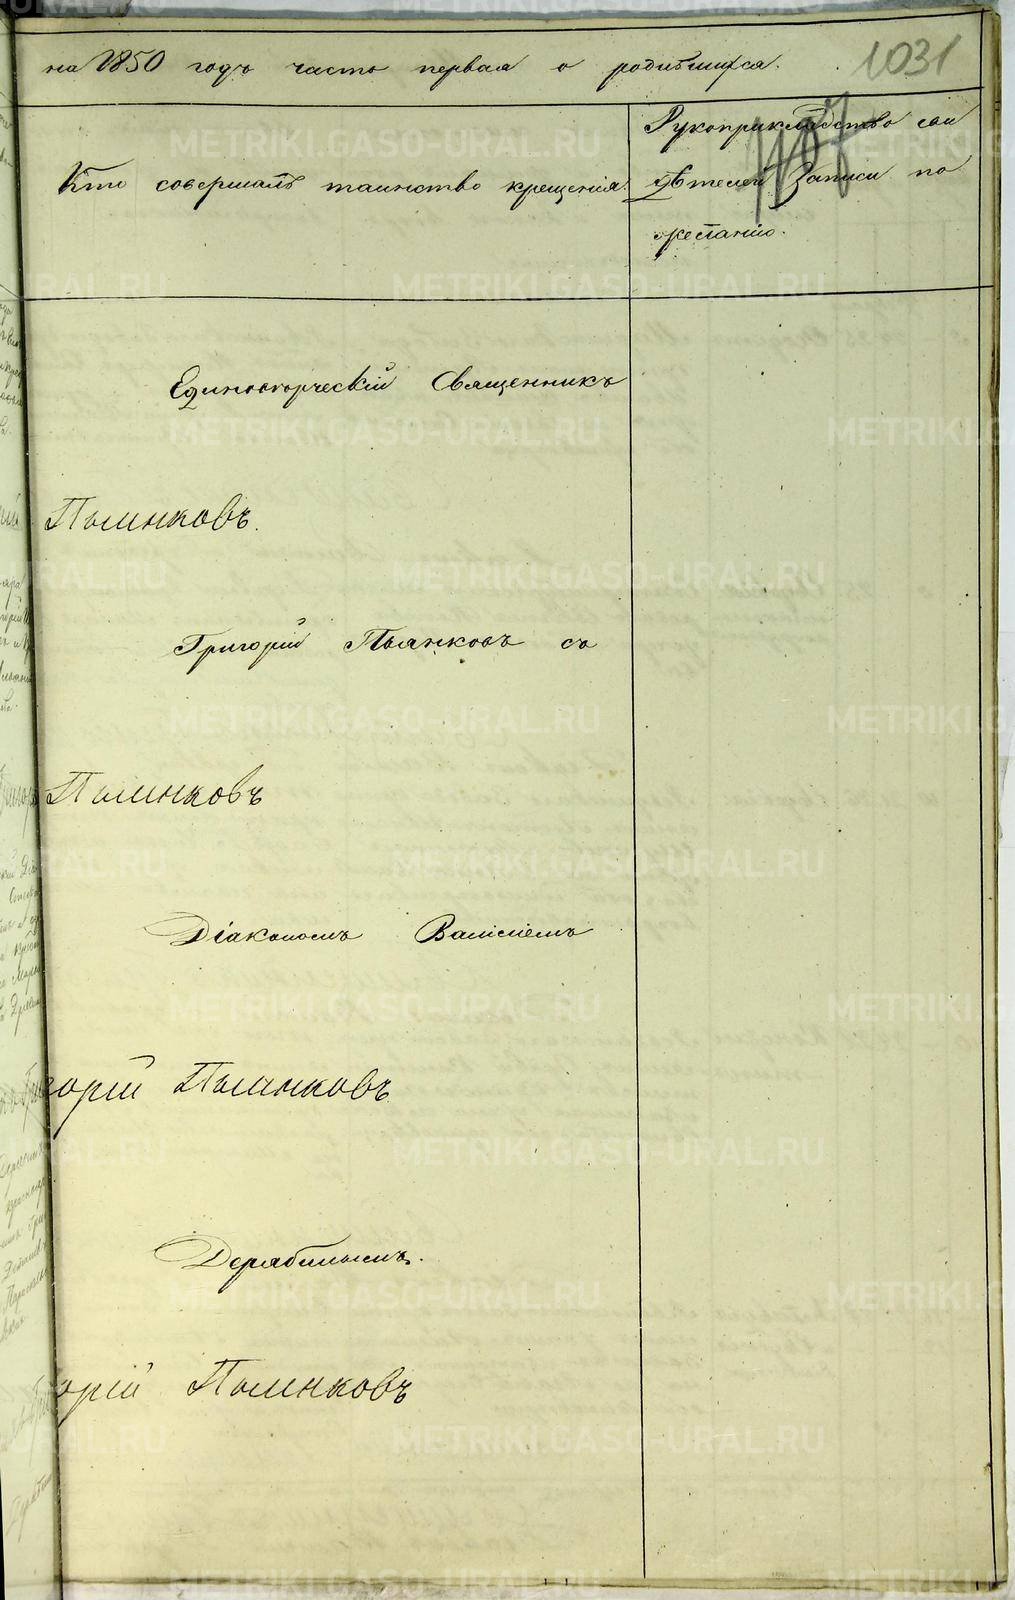 на 1850 годъ часть первая о родившихся.
1031
Кто совершалъ таинство крещенія.
Рукоприкладство сви
дѣтелей Записи по
желанію.
Единоверческій Священникъ
Пьянковъ.
Григорій Пьянковъ съ
Пьянковъ
Діакономъ Василіемъ
горій Пьянковъ
Дерябинымъ.
орій Пьянковъ
METRIKI.GASO-URAL.RU